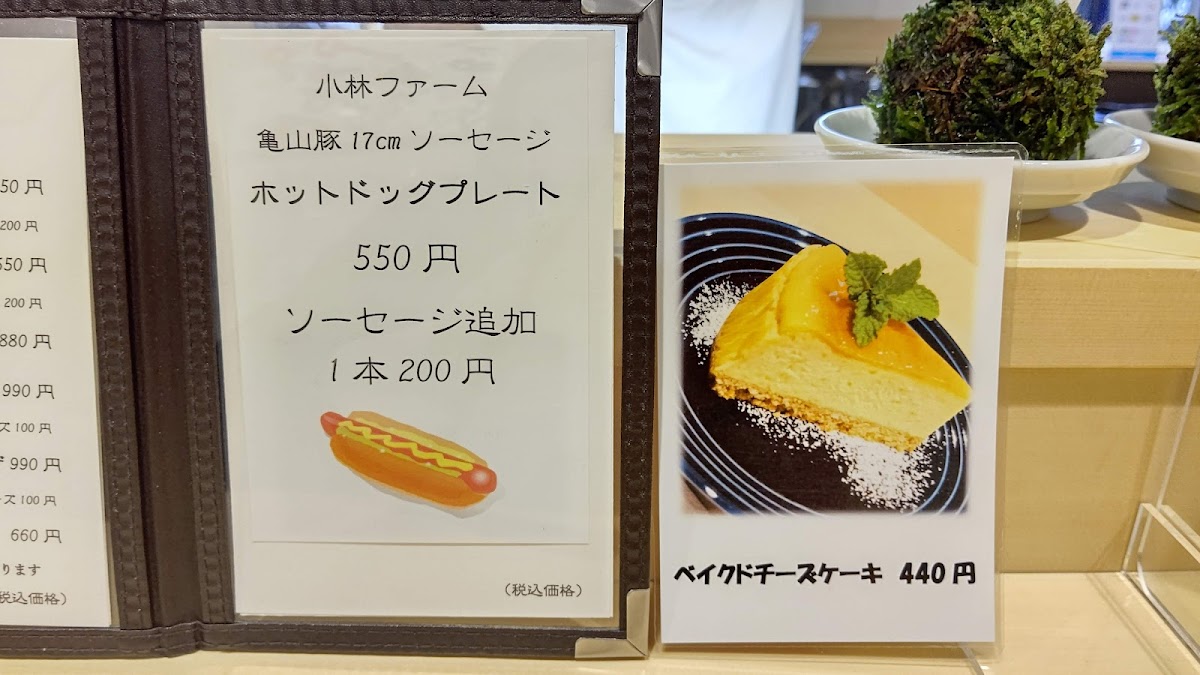 50円
200円
550円
200円
880円
990円
ズ100円
990円
ーズ100円
660円
ります
税込価格)
小林ファーム
亀山豚17cmソーセージ
ホットドッグプレート
550円
ソーセージ追加
1本200円
(税込価格)
ベイクドチーズケーキ 440円